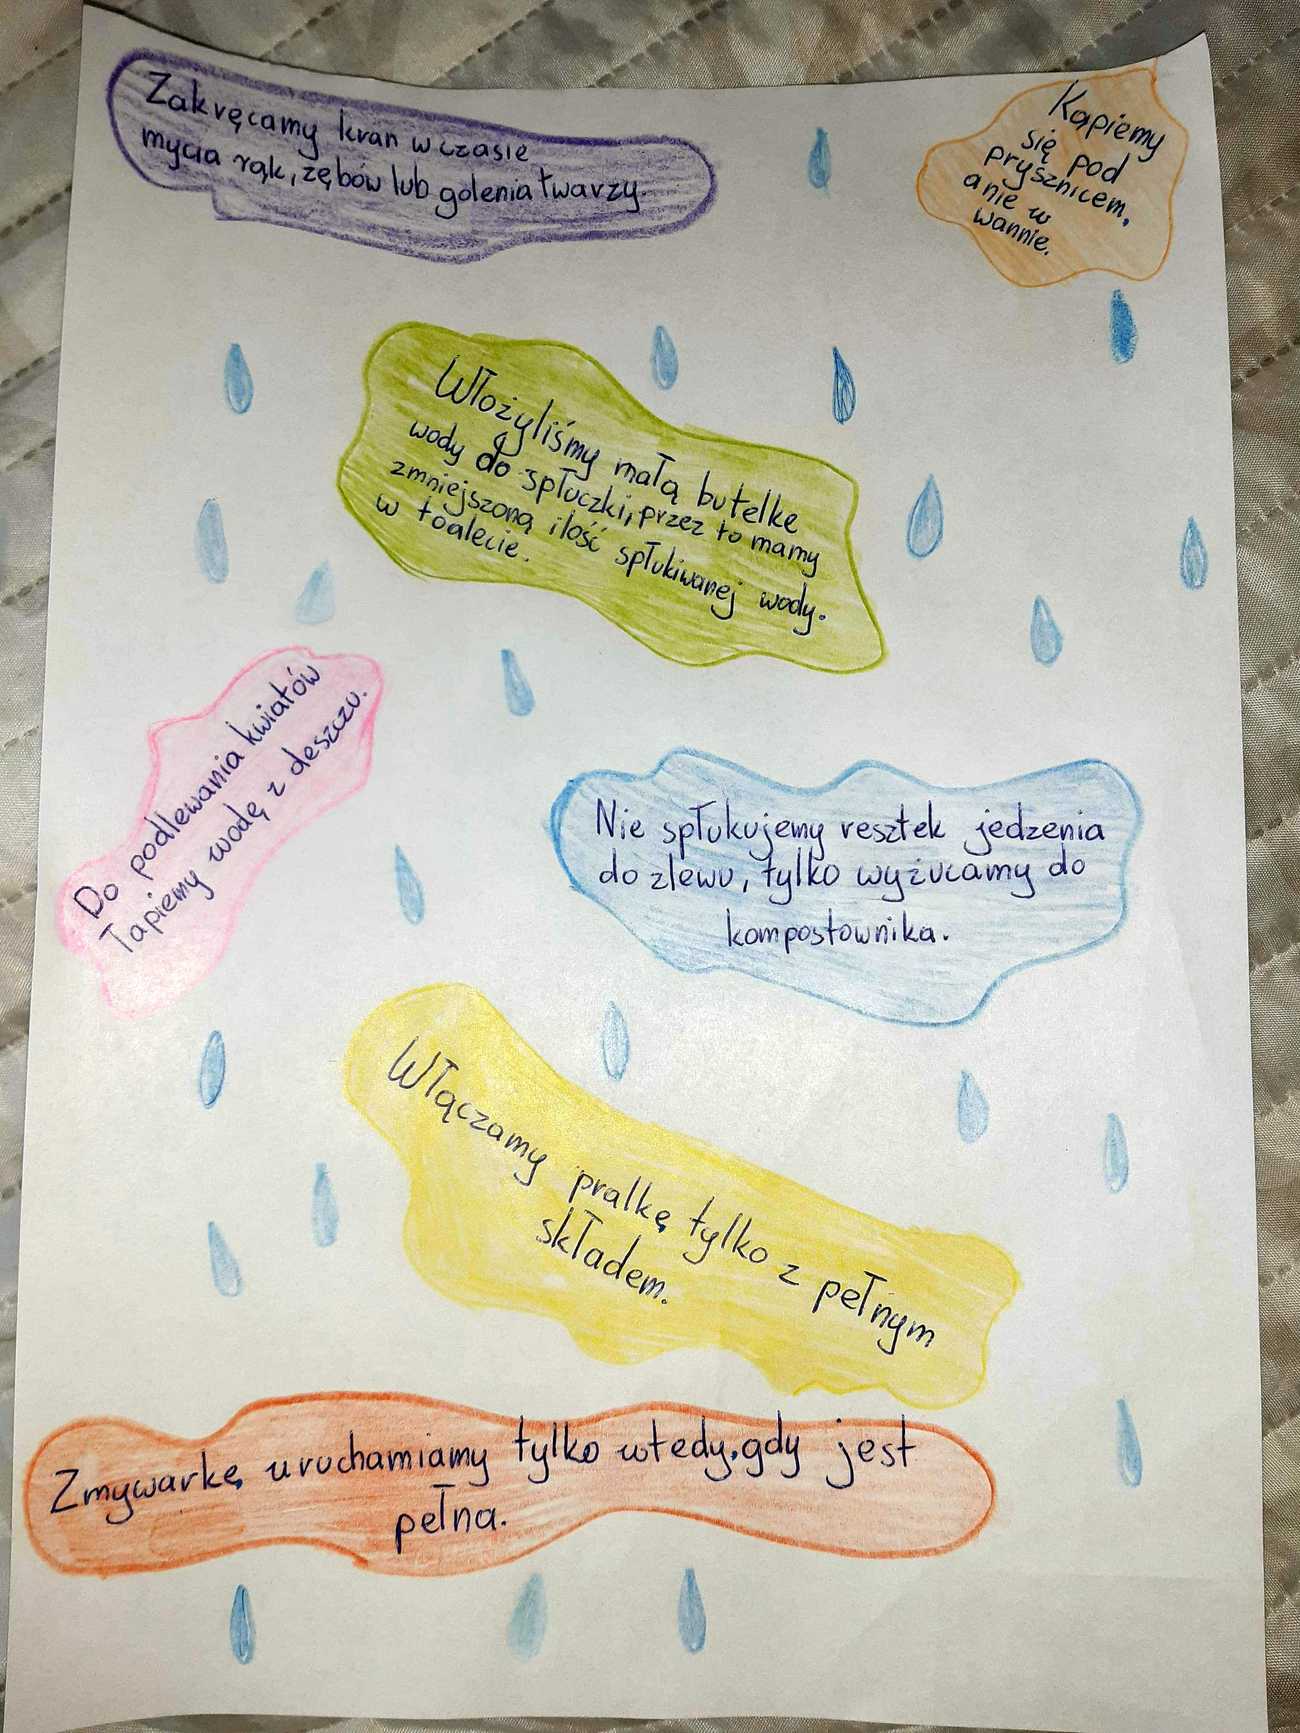 Zakręcamy kran w czasie
mycia rąk, zębów lub golenia twarzy.
Kąpiemy
się pod
prysznicem,
a nie w
wannie.
Włożyliśmy małą butelkę
wody do spłuczki, przez to mamy
zmniejszoną ilość spłukiwanej wody.
w toalecie.
Do podlewania kwiatów
łapiemy wodę z deszczu.
Nie spłukujemy resztek jedzenia
do zlewu, tylko wyżucamy do
kompostownika.
Włączamy pralkę tylko z pełnym
składem.
Zmywarkę uruchamiamy tylko wtedy, gdy jest
pełna.